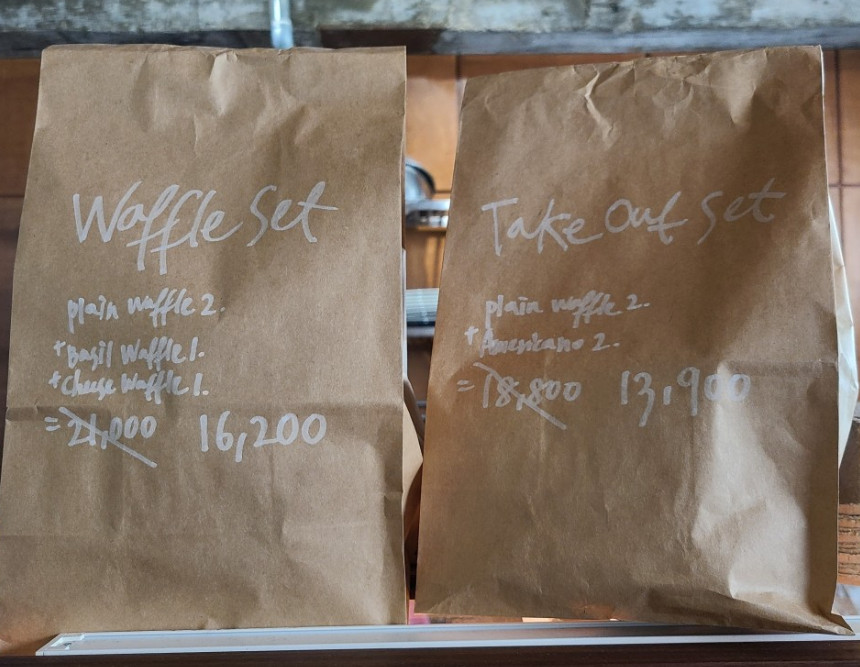 Waffle Set
plain waffle 2.
+Basil Waffle 1.
+Cheese Waffle 1.
=21,000 16,200
Take Out Set
plain waffle 2.
+Americano 2.
=18,800 13,900